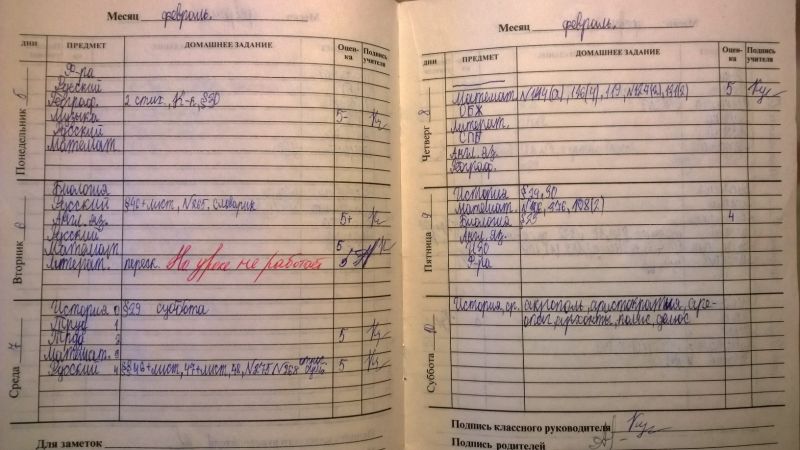 Месяц февраль.
ДНИ ПРЕДМЕТ ДОМАШНЕЕ ЗАДАНИЕ Оцен-ка Подпись учителя
Понедельник 5
Ф-ра
Русский
Географ. 2 стих., К-к, §30
Музыка 5-
Русский
Математ.
Вторник 6
Биология
Русский §46+лист, №865. словарик
Англ. яз. 5+
Русский
Математ. 5
Литерат. переск. На уроке не работай
Среда 7
История 0 §29 суббота
Труд 1
Труд 2
Математ. 3
Русский 4 §§46+лист, 47+лист, 48, №875 №868 5
Для заметок
Месяц февраль.
ДНИ ПРЕДМЕТ ДОМАШНЕЕ ЗАДАНИЕ Оцен-ка Подпись учителя
Четверг 8
Математ. 5
ОБЖ
Литерат.
СПБ
Англ. яз.
Географ.
Пятница 9
История § 29, 30
Математ.
Биология §23 4
Англ. яз.
ИЗО
Ф-ра
Суббота 10
История, ср. акрополь, аристократия, аре-
опаг, архонты, полис, демос
Подпись классного руководителя
Подпись родителей